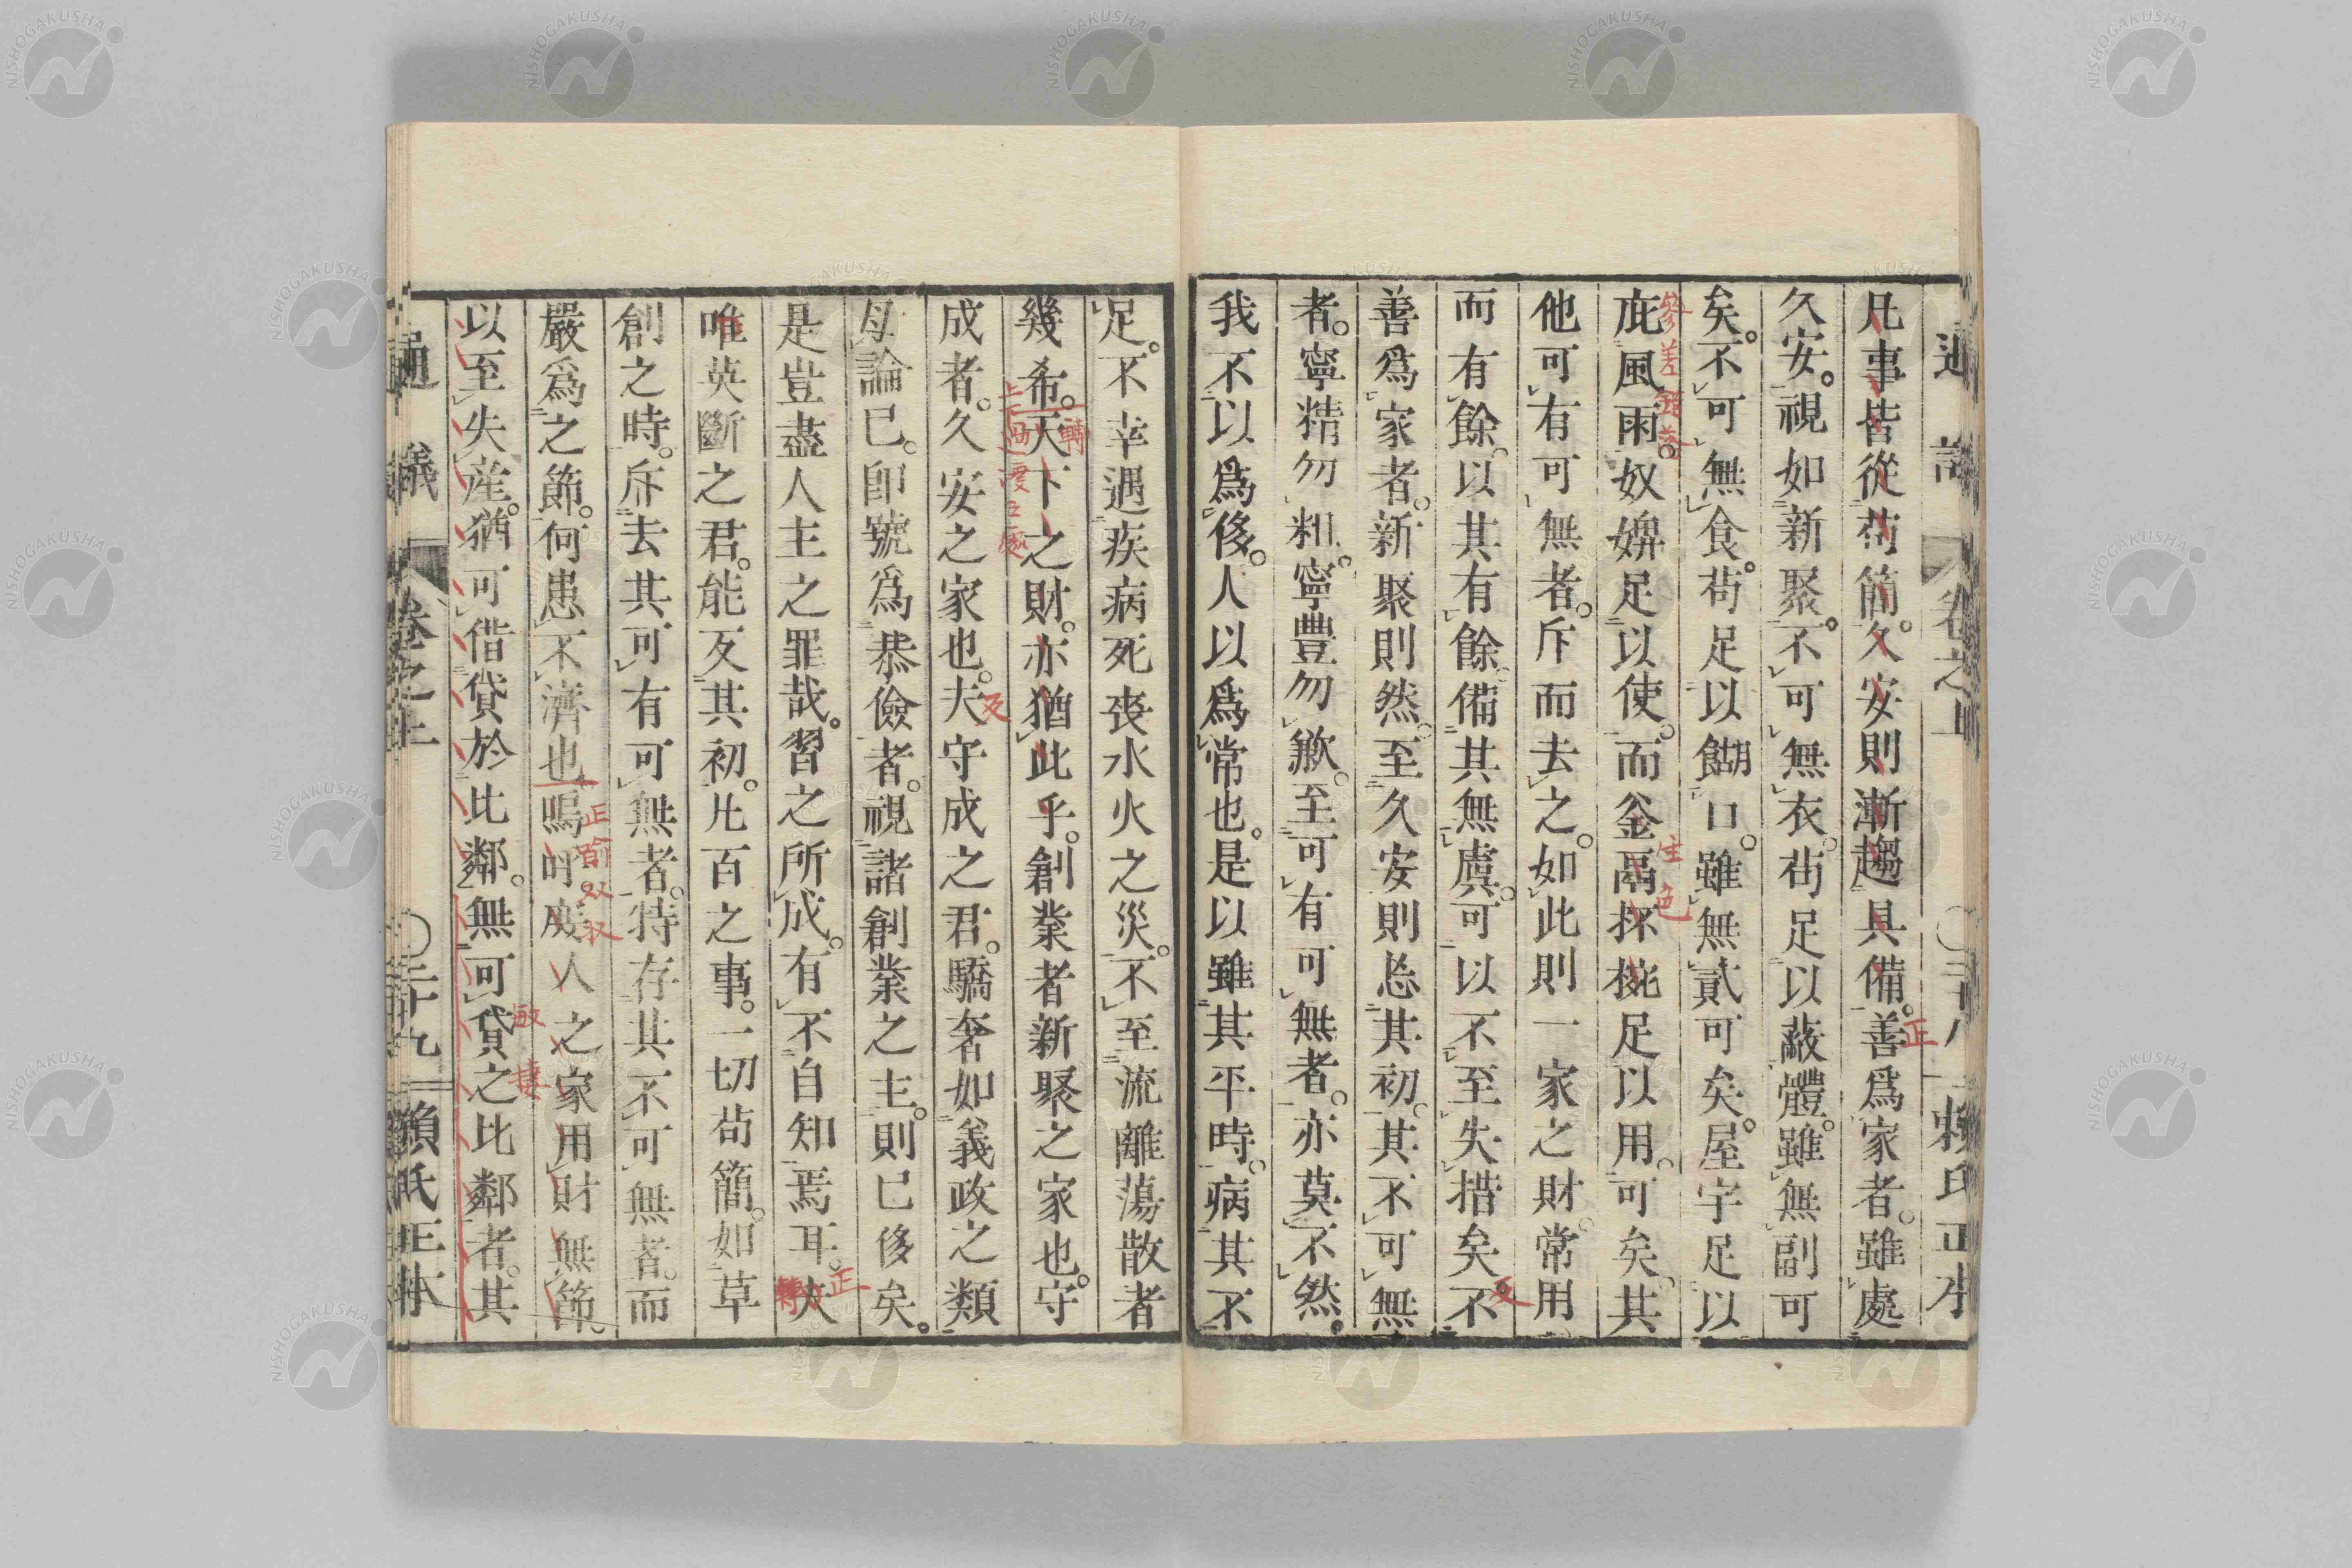 通議 卷之上 二十八 賴氏正本
凡事皆從苟簡。久安則漸趨具備。善爲家者。雖處
久安。視如新聚。不可無衣。苟足以蔽體。雖無副可
矣。不可無食。苟足以餬口。雖無貳可矣。屋宇足以
庇風雨。奴婢足以使。而釜鬲抔椀足以用。可矣。其
他可有可無者。斥而去之。如此則一家之財常用
而有餘。以其有餘備其無虞。可以不至失措矣。不
善爲家者。新聚則然。至久安則忘其初。其不可無
者。寧精勿粗。寧豐勿歉。至可有可無者。亦莫不然。
我不以爲侈。人以爲常也。是以雖其平時。病其不
足。不幸遇疾病死喪水火之災。不至流離蕩散者
幾希。天下之財。亦猶此乎。創業者新聚之家也。守
成者。久安之家也。夫守成之君。驕奢如義政之類
毋論已。卽號爲恭儉者。視諸創業之主。則已侈矣。
是豈盡人主之罪哉。習之所成。有不自知焉耳。夫
唯英斷之君。能反其初。凡百之事。一切苟簡。如草
創之時。斥去其可有可無者。特存其不可無者。而
嚴爲之節。何患不濟也。嗚呼庶人之家用財無節。
以至失産。猶可借貸於比鄰。無可貸之比鄰者。其
通議 卷之上 二十九 賴氏正本
正
參差錯落
注色
反
轉
上下過渡工處
反
正
轉
正喻双收
敏捷
NISHOGAKUSHA